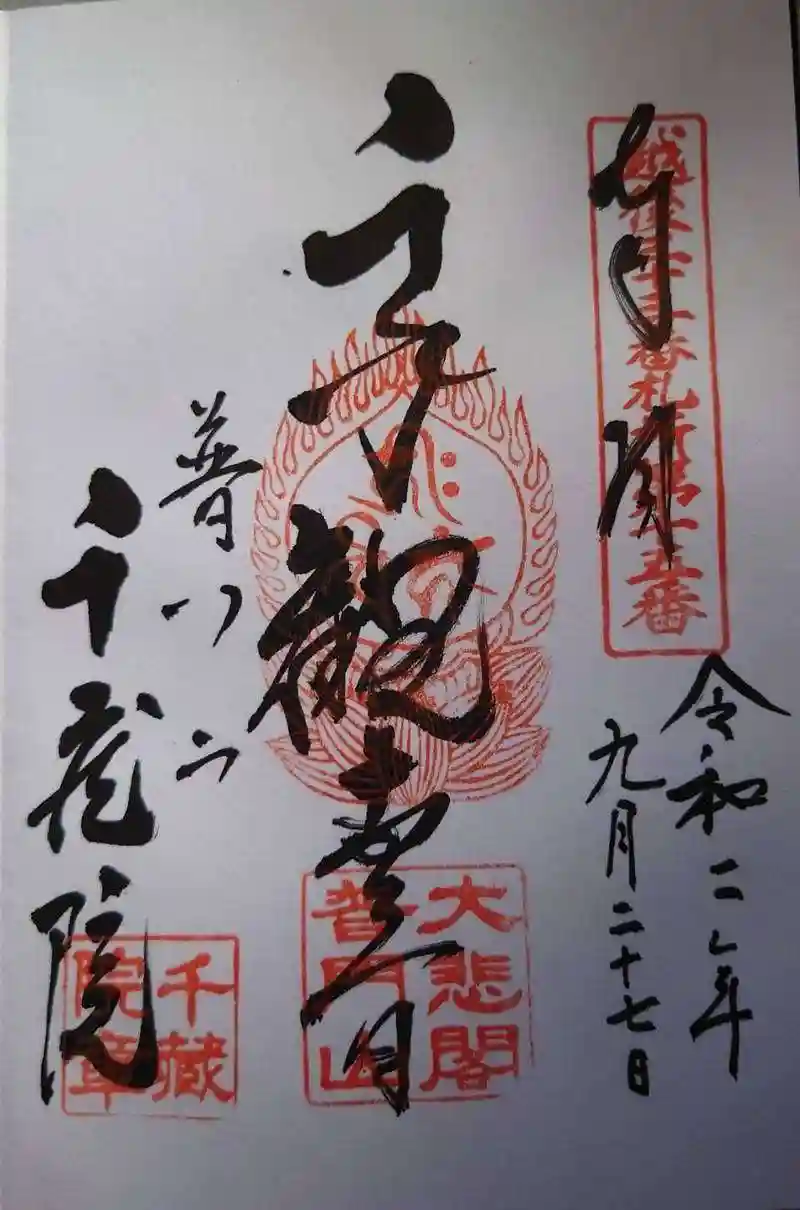 越後三十三番札所第十五番
奉拝
令和二年
九月二十七日
千手觀世音
大悲閣
普門山
普門山
千蔵院
千藏
院章